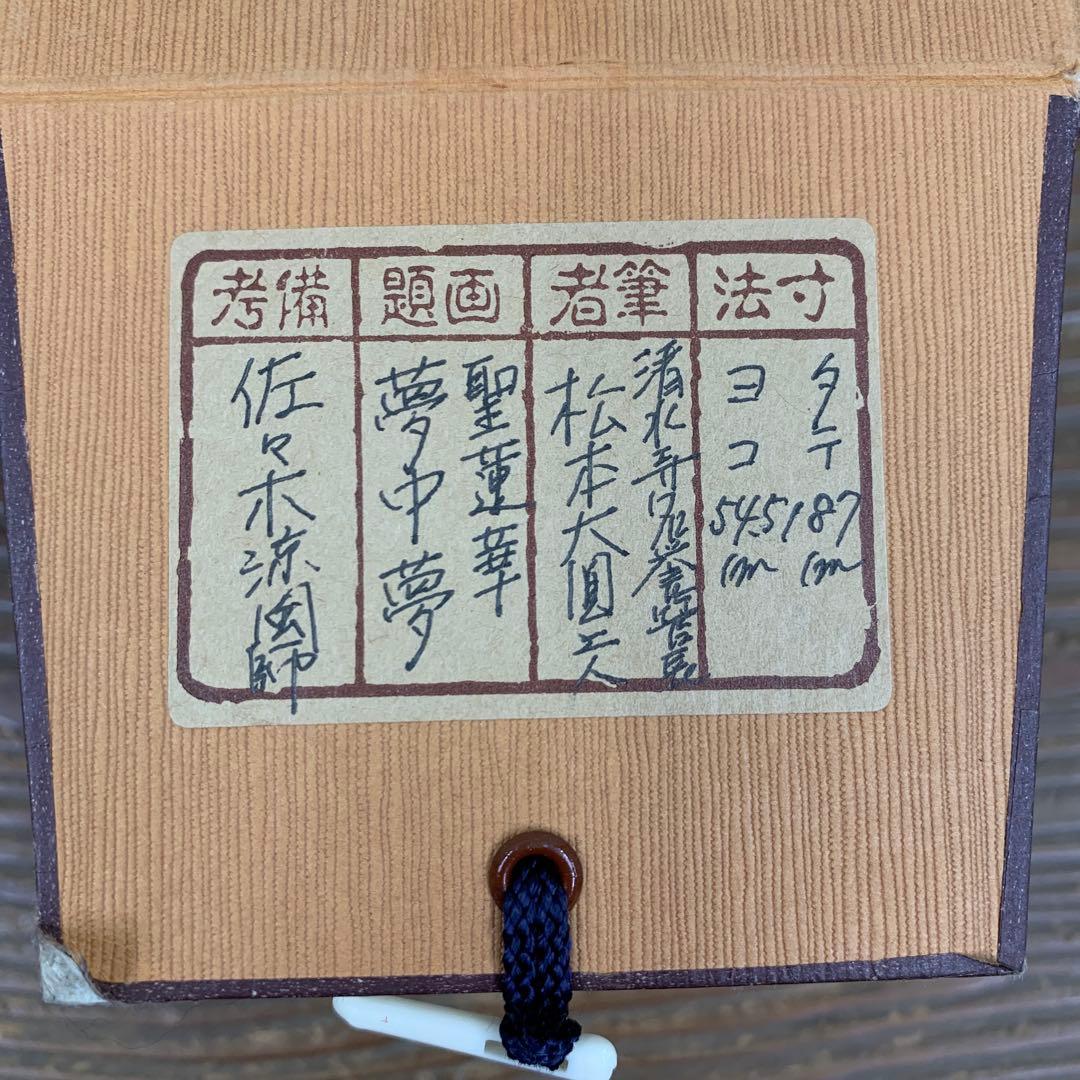 寸法
タテ 187cm
ヨコ 54.5cm
筆者
清水寺
松本大圓
画題
聖蓮華
夢中夢
備考
佐々木涼圀師